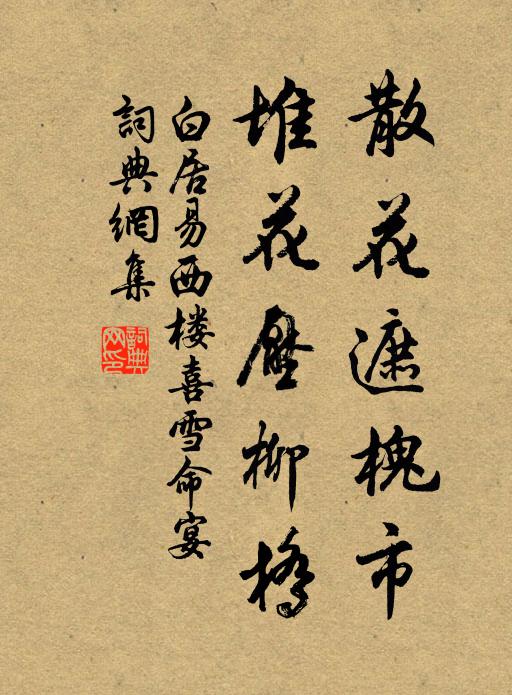 散花遮槐市
堆花壓柳橋
白居易西楼喜雪命宴
詞典網集
詞典網印